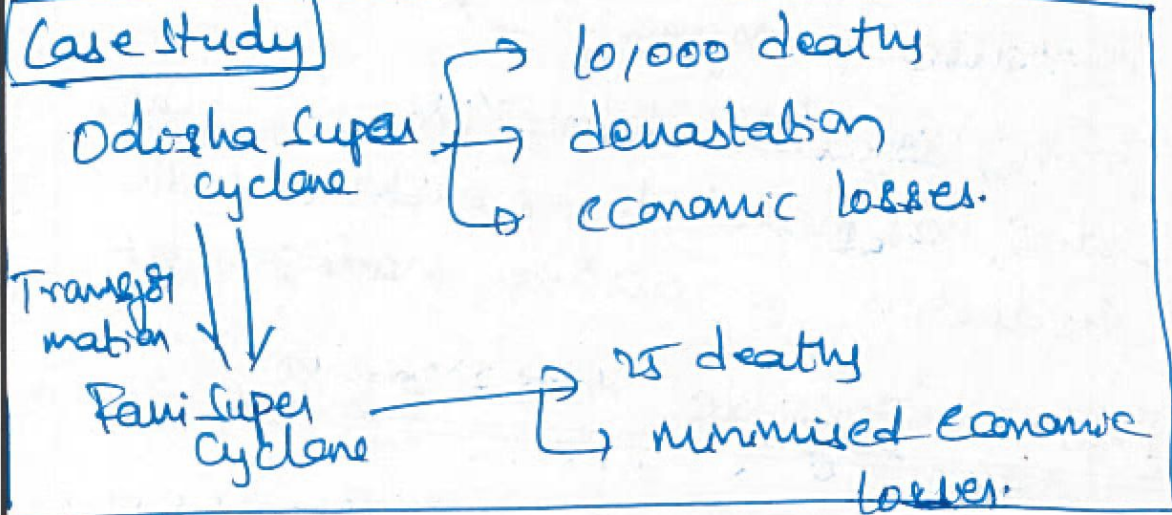 Case study
Odisha Super
cyclone
10,000 deaths
devastation
economic losses.
Transfor
mation
Fani Super
Cyclone
25 deaths
minimised economic
losses.